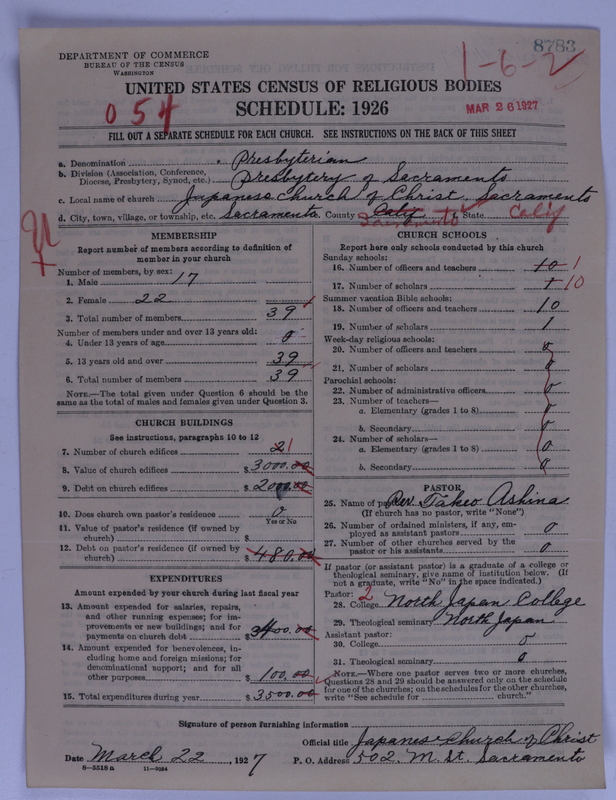 8783
DEPARTMENT OF COMMERCE
BUREAU OF THE CENSUS
WASHINGTON
1-6-2
UNITED STATES CENSUS OF RELIGIOUS BODIES
054
SCHEDULE: 1926
MAR 26 1927
FILL OUT A SEPARATE SCHEDULE FOR EACH CHURCH. SEE INSTRUCTIONS ON THE BACK OF THIS SHEET
a. Denomination Presbyterian
b. Division (Association, Conference, Diocese, Presbytery, Synod, etc.) Presbytery of Sacramento
c. Local name of church Japanese Church of Christ, Sacramento
d. City, town, village, or township, etc. Sacramento County Calif Sacramento State Calif
MEMBERSHIP
Report number of members according to definition of
member in your church
Number of members, by sex:
1. Male 17
2. Female 22
3. Total number of members 39
Number of members under and over 13 years old:
4. Under 13 years of age 0
5. 13 years old and over 39
6. Total number of members 39
NOTE.—The total given under Question 6 should be
same as the total of males and females given under Question 3.
CHURCH BUILDINGS
See instructions, paragraphs 10 to 12
7. Number of church edifices 2 1
8. Value of church edifices $ 3000.00
9. Debt on church edifices $ 2000.00
10. Does church own pastor's residence? 0
Yes or No
11. Value of pastor's residence (if owned by
church) $
12. Debt on pastor's residence (if owned by
church) $ 480.00
EXPENDITURES
Amount expended by your church during last fiscal year
13. Amount expended for salaries, repairs,
and other running expenses; for im-
provements or new buildings; and for
payments on church debt $ 3400.00
14. Amount expended for benevolences, in-
cluding home and foreign missions; for
denominational support; and for all
other purposes $ 100.00
15. Total expenditures during year $ 3500.00
CHURCH SCHOOLS
Report here only schools conducted by this church
Sunday schools:
16. Number of officers and teachers 10 1
17. Number of scholars 1 10
Summer vacation Bible schools:
18. Number of officers and teachers 10
19. Number of scholars 1
Week-day religious schools:
20. Number of officers and teachers 0
21. Number of scholars 0
Parochial schools:
22. Number of administrative officers 0
23. Number of teachers—
a. Elementary (grades 1 to 8) 0
b. Secondary 0
24. Number of scholars—
a. Elementary (grades 1 to 8) 0
b. Secondary 0
PASTOR
25. Name of pastor Rev. Takeo Ashina
(If church has no pastor, write "None")
26. Number of ordained ministers, if any, em-
ployed as assistant pastors 0
27. Number of other churches served by the
pastor or his assistants 0
If pastor (or assistant pastor) is a graduate of a college or
theological seminary, give name of institution below. (If
not a graduate, write "No" in the space indicated.)
Pastor: 2
28. College North Japan College
29. Theological seminary North Japan
Assistant pastor:
30. College 0
31. Theological seminary 0
NOTE.—Where one pastor serves two or more churches,
Questions 28 and 29 should be answered only on the schedule
for one of the churches; on the schedules for the other churches,
write "See schedule for church."
Signature of person furnishing information
Official title Japanese Church of Christ
Date March 22, 1927 P. O. Address 502. M. St. Sacramento
8—5518 a 11—9034